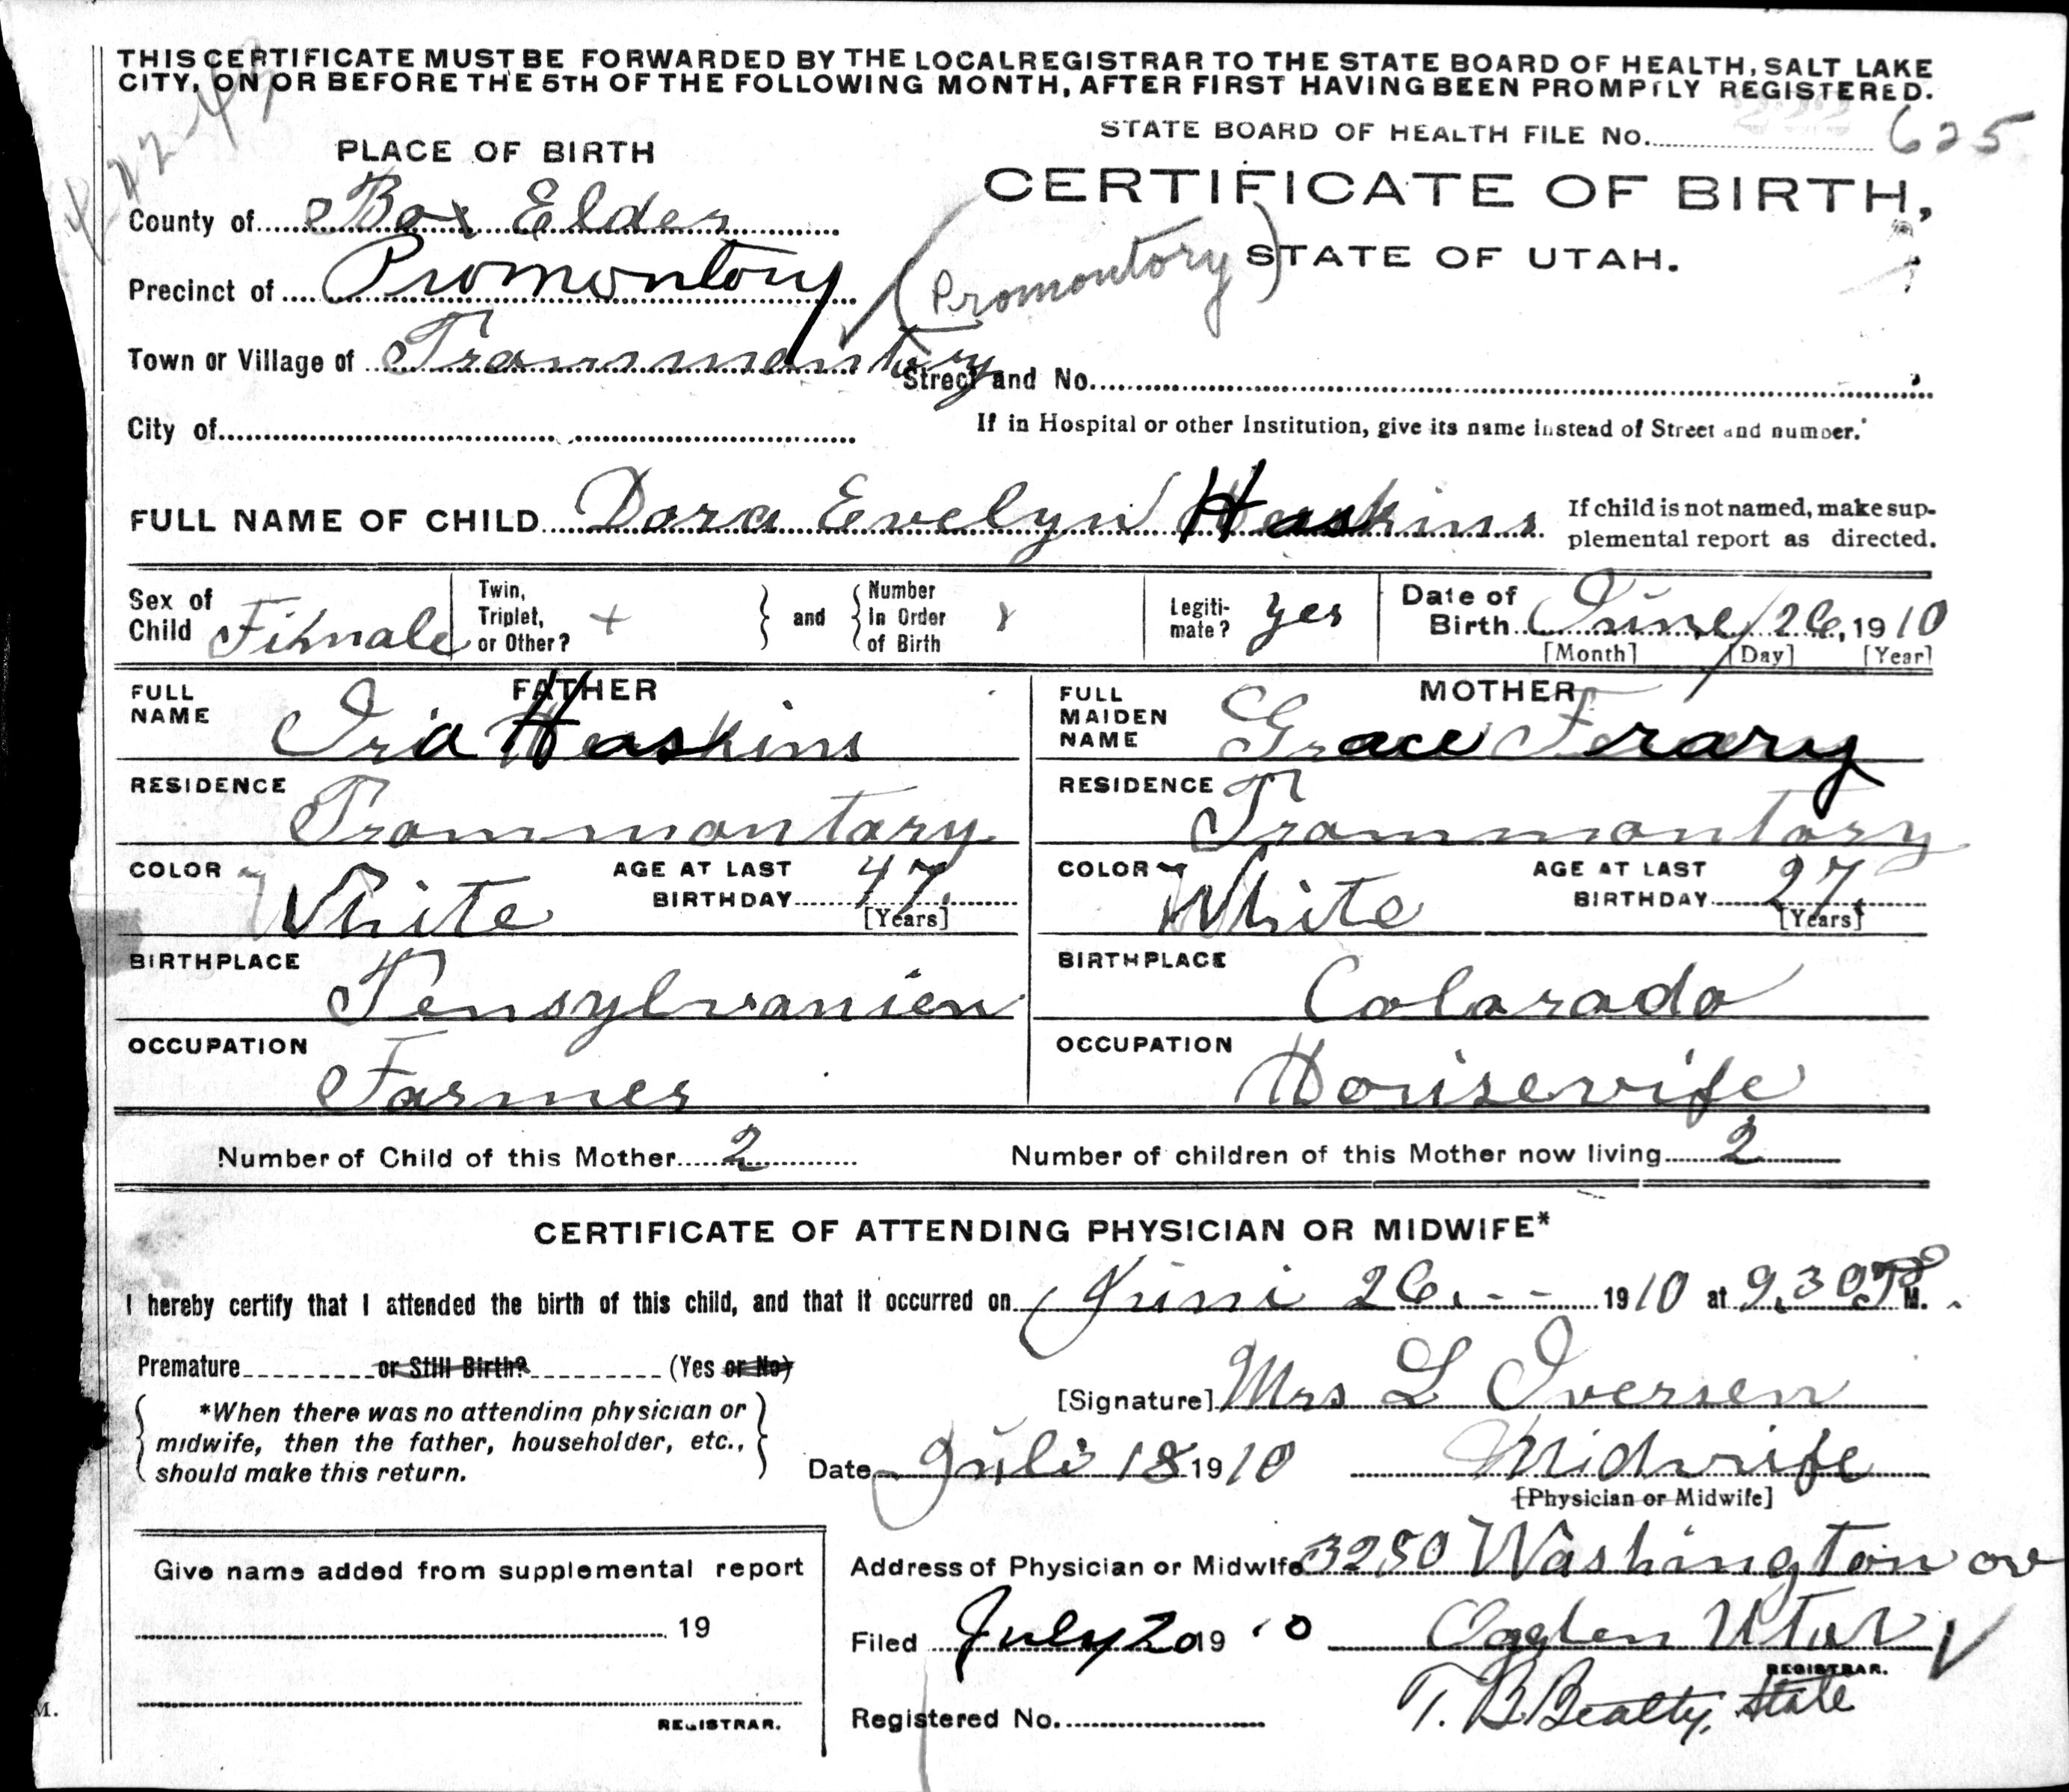 THIS CERTIFICATE MUST BE FORWARDED BY THE LOCAL REGISTRAR TO THE STATE BOARD OF HEALTH, SALT LAKE
CITY, ON OR BEFORE THE 5TH OF THE FOLLOWING MONTH, AFTER FIRST HAVING BEEN PROMPTLY REGISTERED.
STATE BOARD OF HEALTH FILE No. 222 625
4-22-49
PLACE OF BIRTH
CERTIFICATE OF BIRTH,
County of Box Elder
STATE OF UTAH.
Precinct of Promontory (Promontory)
Town or Village of Trommontory Street and No.
City of
If in Hospital or other Institution, give its name instead of Street and number.
FULL NAME OF CHILD Dora Evelyn Haskins If child is not named, make sup-
plemental report as directed.
Sex of Child Fihmale Twin, Triplet, or Other? + } and { Number In Order of Birth Legiti-mate? yes Date of Birth June 26, 1910
[Month] [Day] [Year]
FATHER
FULL NAME Ira Haskins
RESIDENCE Trommontary
COLOR White AGE AT LAST BIRTHDAY 47
[Years]
BIRTHPLACE Pensylvanien
OCCUPATION Farmer
MOTHER
FULL MAIDEN NAME Grace Frary
RESIDENCE Trommontory
COLOR White AGE AT LAST BIRTHDAY 27
[Years]
BIRTHPLACE Colorado
OCCUPATION Housewife
Number of Child of this Mother 2 Number of children of this Mother now living 2
CERTIFICATE OF ATTENDING PHYSICIAN OR MIDWIFE*
I hereby certify that I attended the birth of this child, and that it occurred on Juni 26. -- 1910 at 9,30 P M.
Premature or Still Birth? (Yes or No)
[Signature] Mrs L Iversen
*When there was no attending physician or
midwife, then the father, householder, etc.,
should make this return.
Date Juli 18 1910 Midwife
[Physician or Midwife]
Give name added from supplemental report
19
REGISTRAR.
Address of Physician or Midwife 3280 Washington av
Filed July 20 1910 Ogden Utah
REGISTRAR.
Registered No. T. B Beatty, State
M.